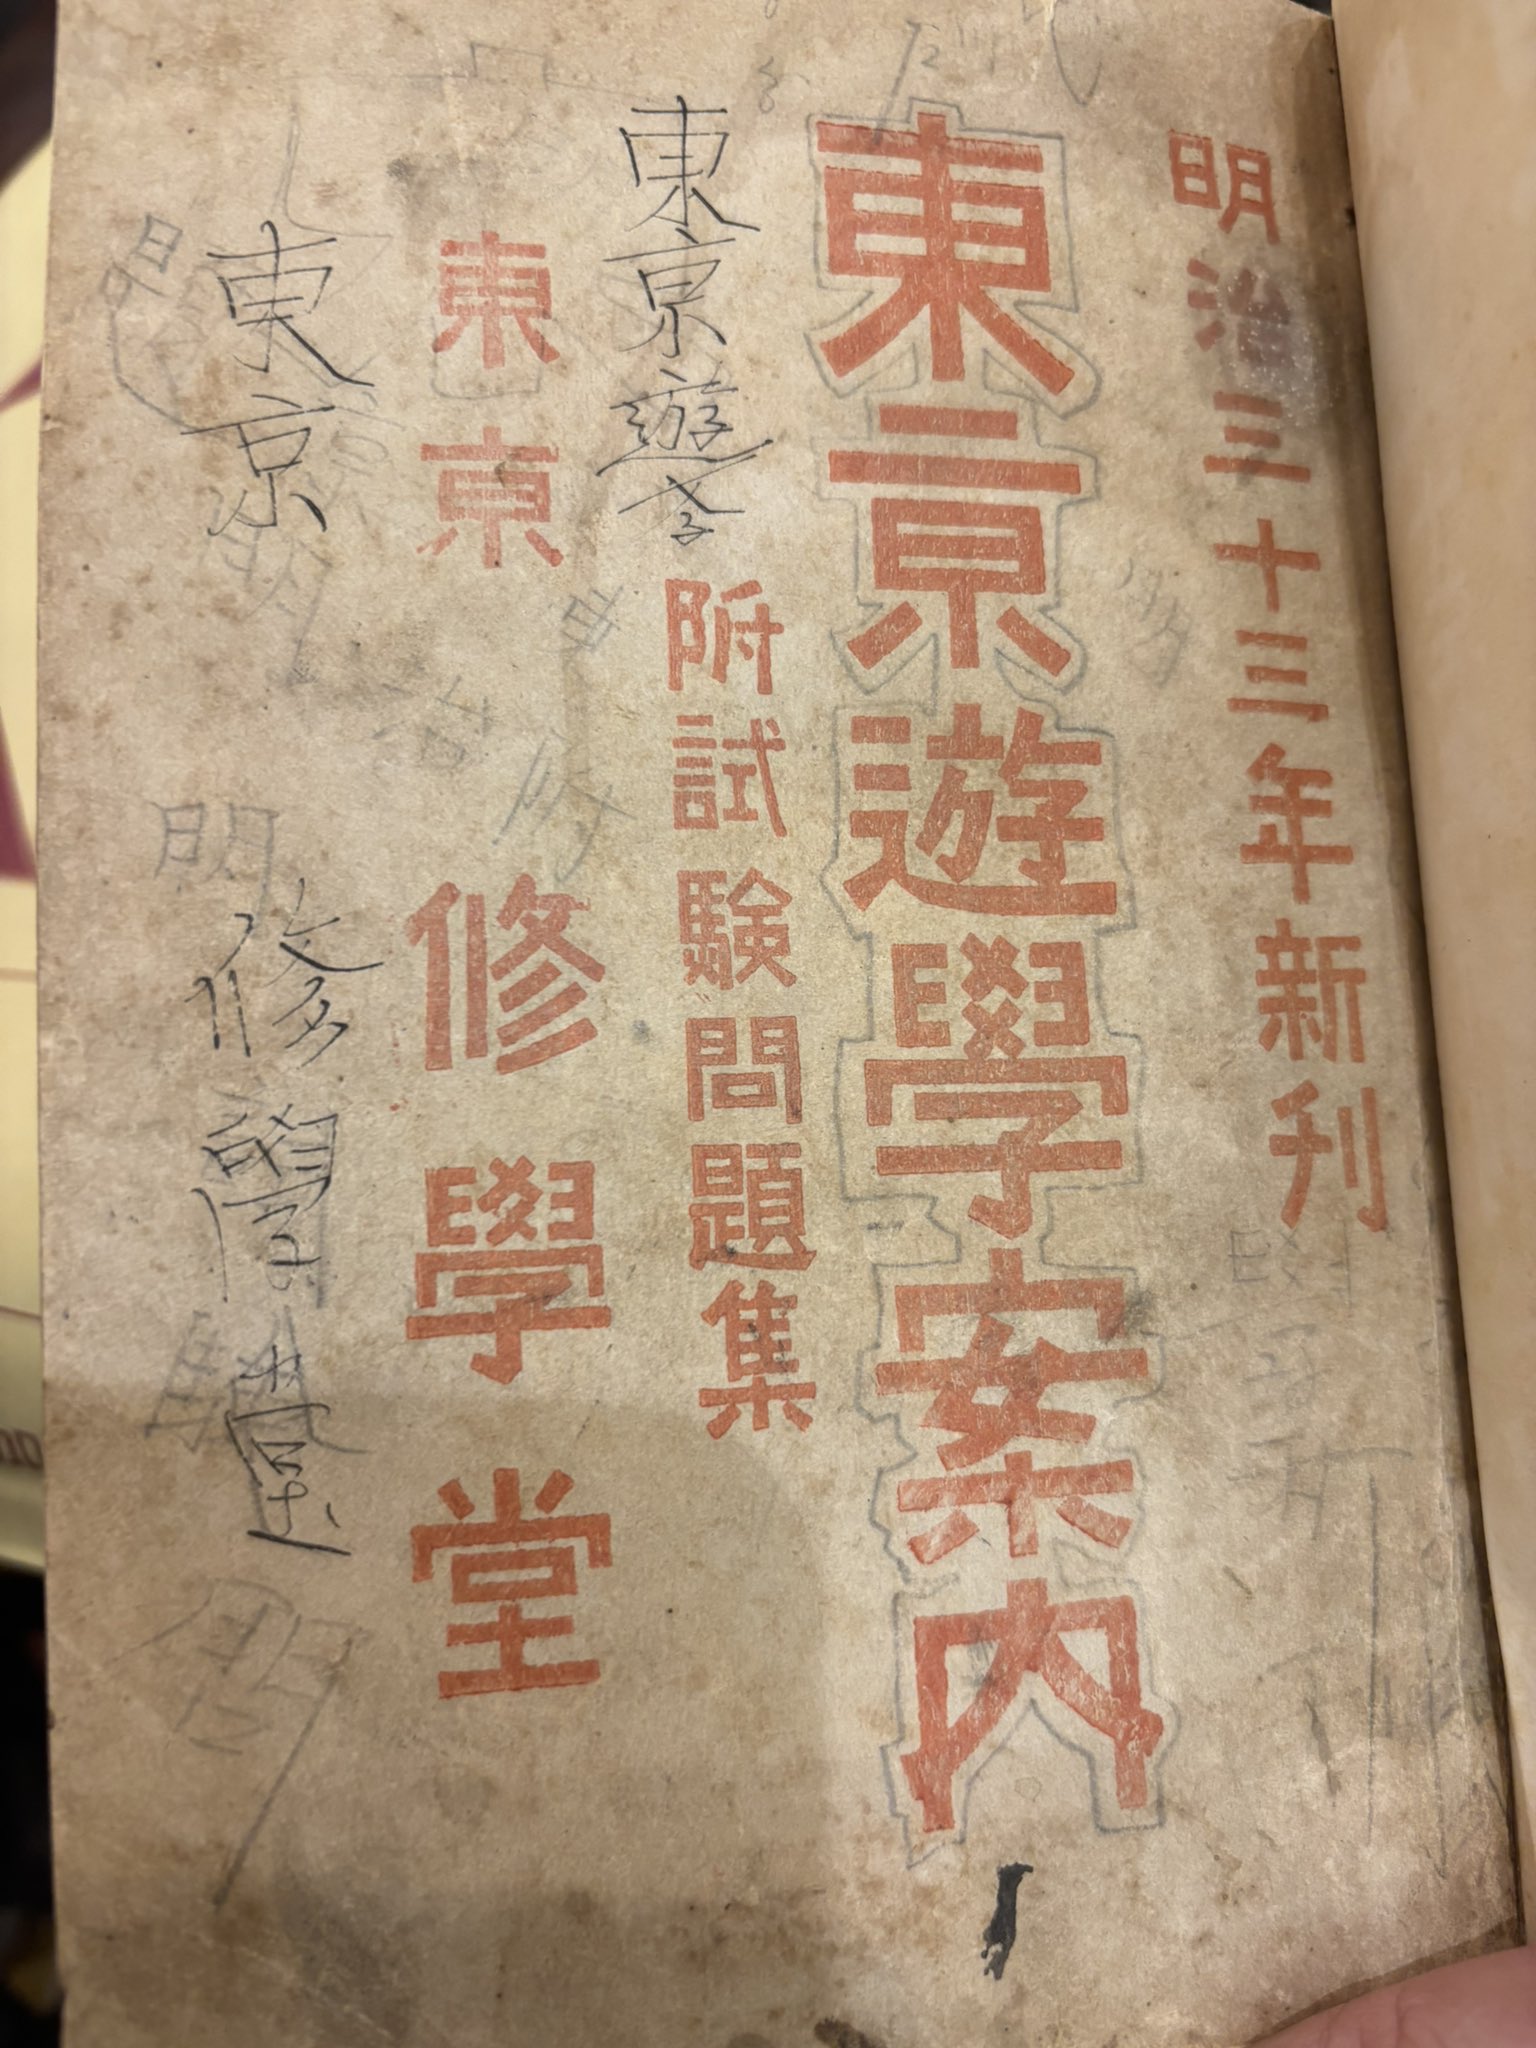 明治三十三年新刊
東京遊學案内
附試験問題集
東京遊学
東京 修學堂
東京 修學堂